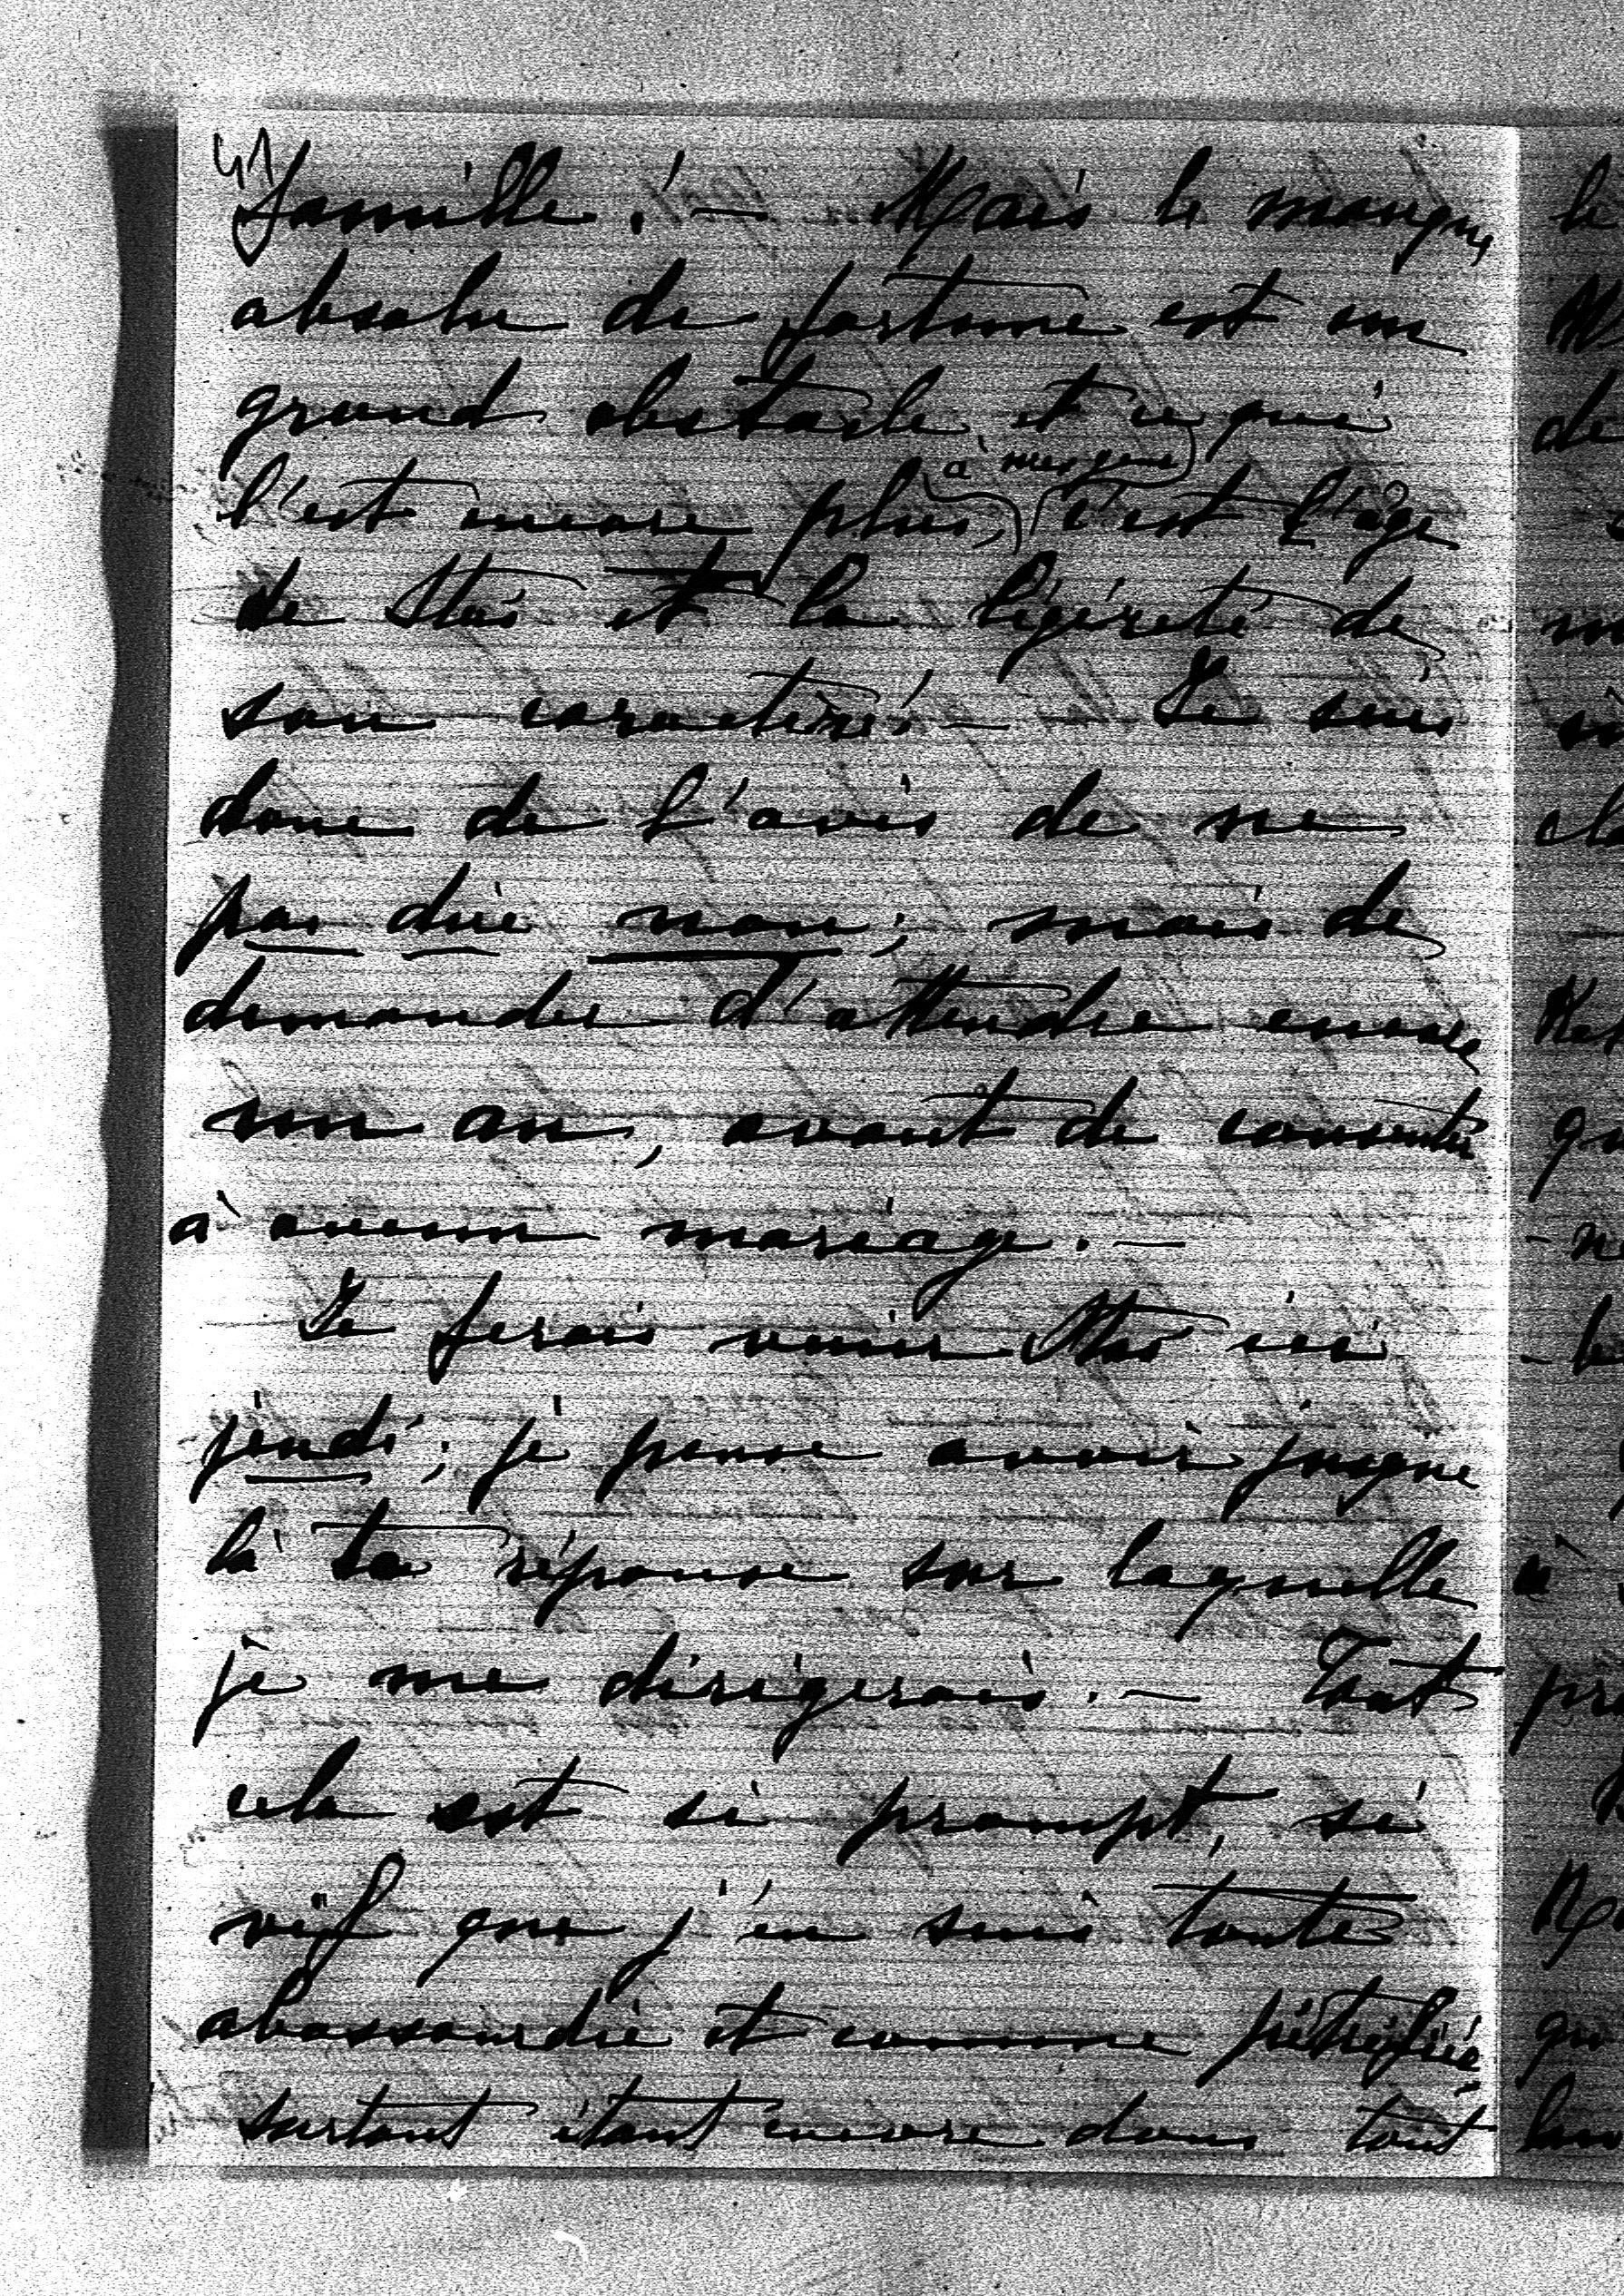 41
famille! — Mais le manque
absolu de fortune est un
grand obstacle et ce qui
à mes yeux
l'est encore plus, c'est l'âge
de Stas et la légèreté de
son caractère! — Je suis
donc de l'avis de ne
pas dire non; mais de
demander d'attendre encore
un an, avant de consentir
à aucun mariage. —
Je ferais venir Stas ici
jeudi; je pense avoir jusque
là ta réponse sur laquelle
je me dirigerais. — Tout
cela est si prompt, si
vif que j'en suis toute
abassourdie et comme pétréfiée
surtout étant encore dans tout